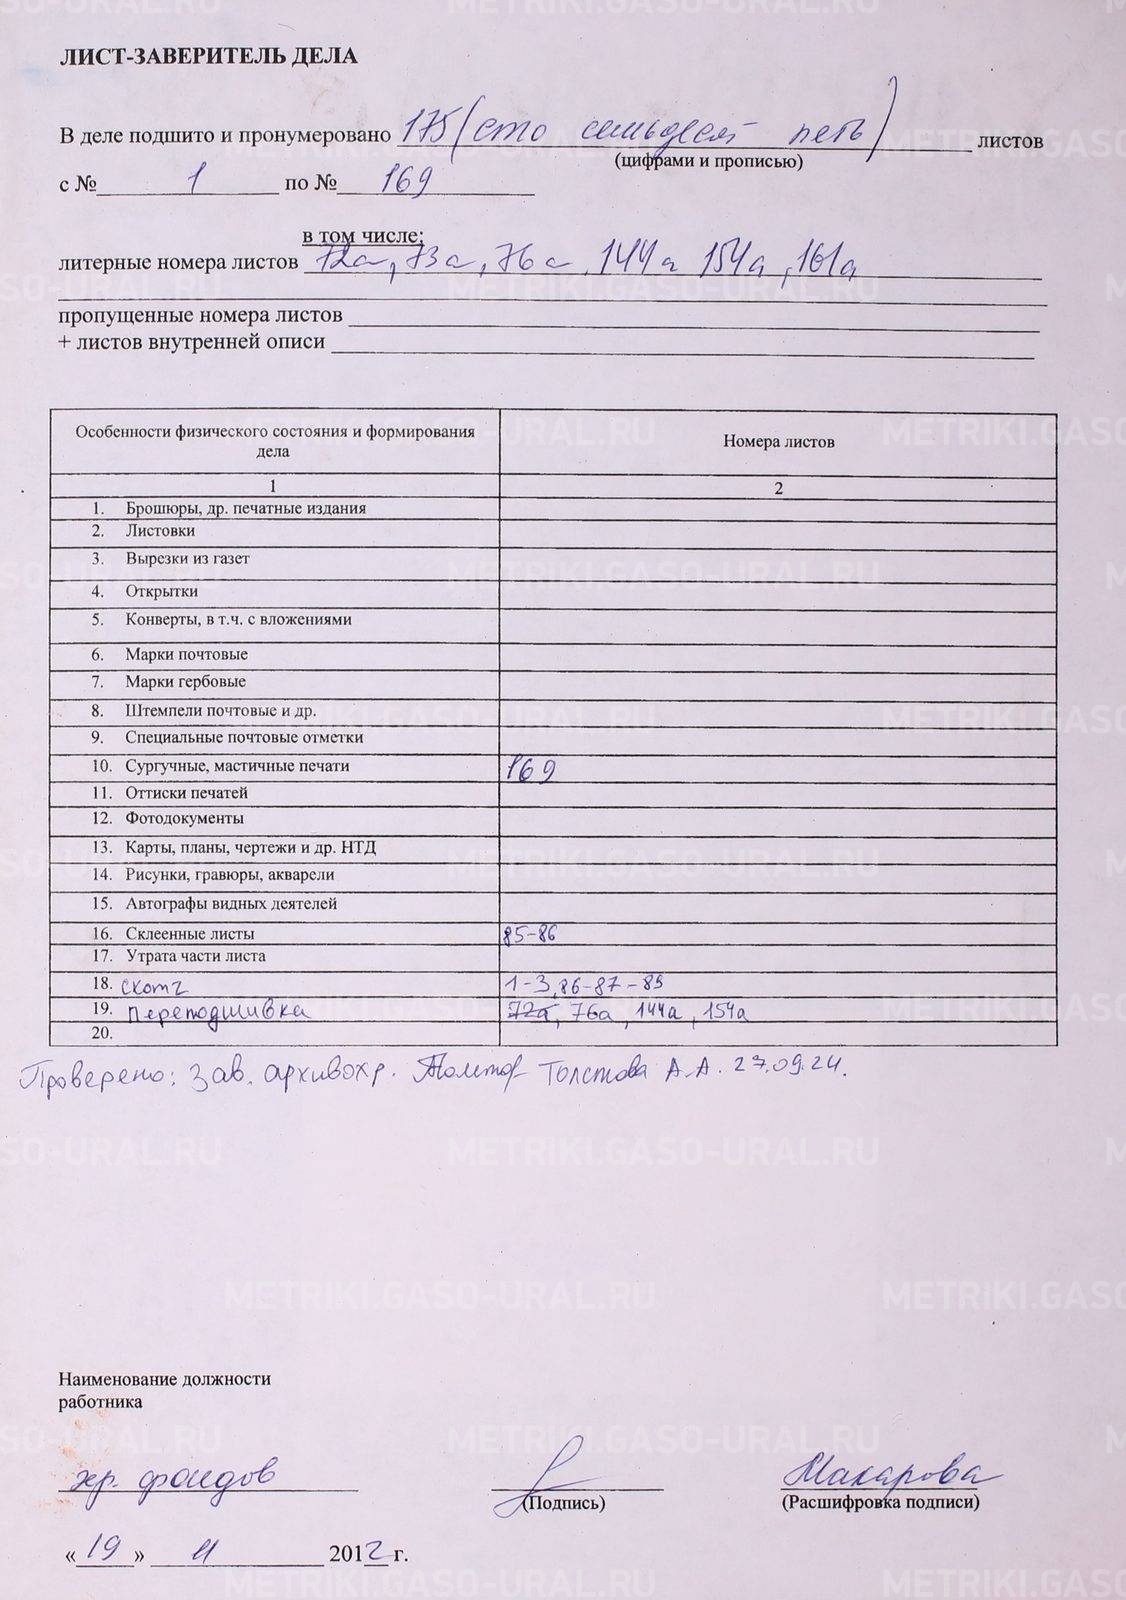 ЛИСТ-ЗАВЕРИТЕЛЬ ДЕЛА
В деле подшито и пронумеровано 175 (сто семьдесят пять) листов
(цифрами и прописью)
с № 1 по № 169
в том числе:
литерные номера листов 72а, 73а, 76а, 144а 154а, 161а
пропущенные номера листов
+ листов внутренней описи
Особенности физического состояния и формирования дела Номера листов
1 2
1. Брошюры, др. печатные издания
2. Листовки
3. Вырезки из газет
4. Открытки
5. Конверты, в т.ч. с вложениями
6. Марки почтовые
7. Марки гербовые
8. Штемпели почтовые и др.
9. Специальные почтовые отметки
10. Сургучные, мастичные печати 169
11. Оттиски печатей
12. Фотодокументы
13. Карты, планы, чертежи и др. НТД
14. Рисунки, гравюры, акварели
15. Автографы видных деятелей
16. Склеенные листы 85-86
17. Утрата части листа
18. скотч 1-3, 86-87-89
19. Переподшивка 72а, 76а, 144а, 154а
20.
Проверено: зав. архивохр. Толстова А.А. 27.09.24.
Наименование должности
работника
хр. фондов Макарова
(Подпись) (Расшифровка подписи)
«19» 11 2012 г.
METRIKI.GASO-URAL.RU